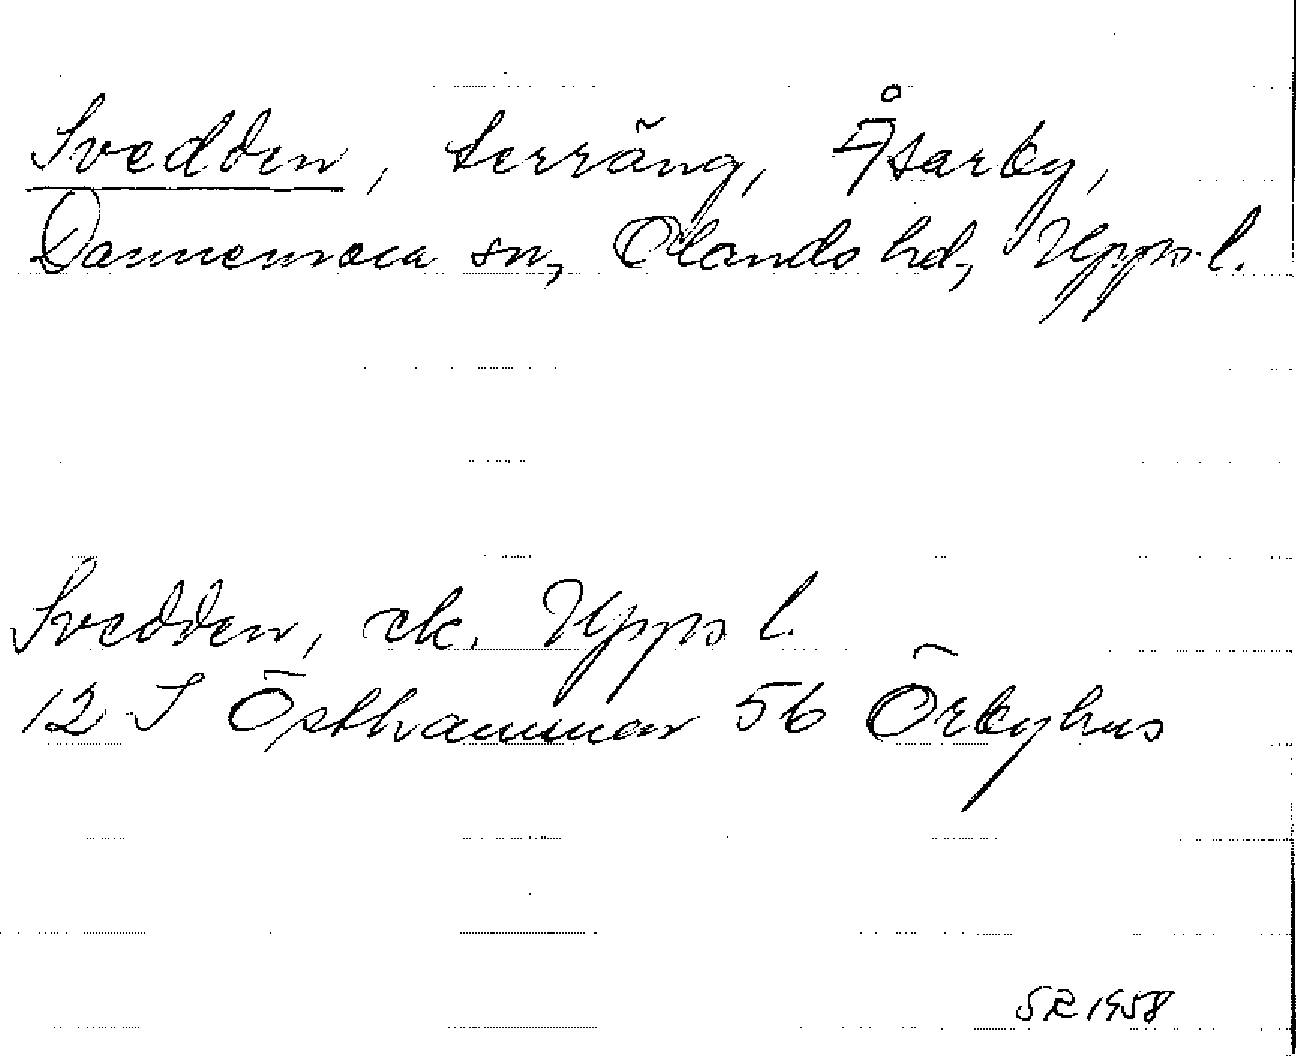 Svedden, terräng, Åsarby,
Dannemora sn, Olands hd, Upps. l.
Svedden, ek. Upps l.
12 I Östhammar 56 Örbyhus
SR 1958